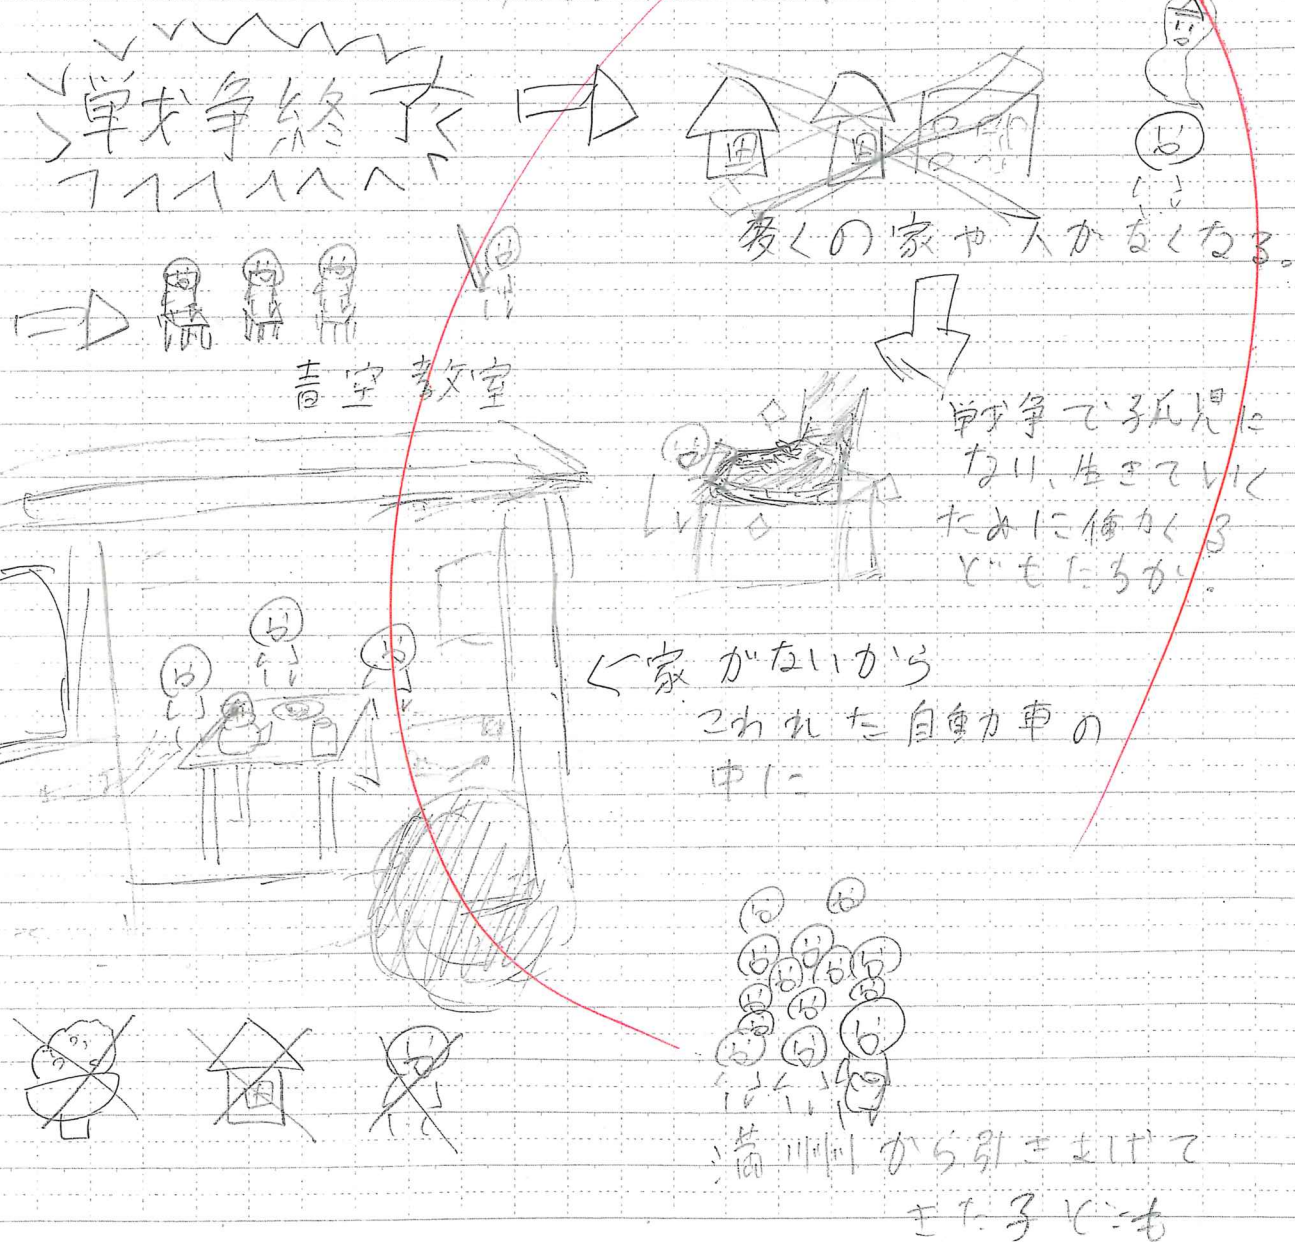 戦争終了
多くの家や人がなくなる。
青空教室
戦争で孤児に
なり、生きていく
ために働くる
どもたちが。
家がないから
こわれた自動車の
中に
満州から引きあげて
きた子ども